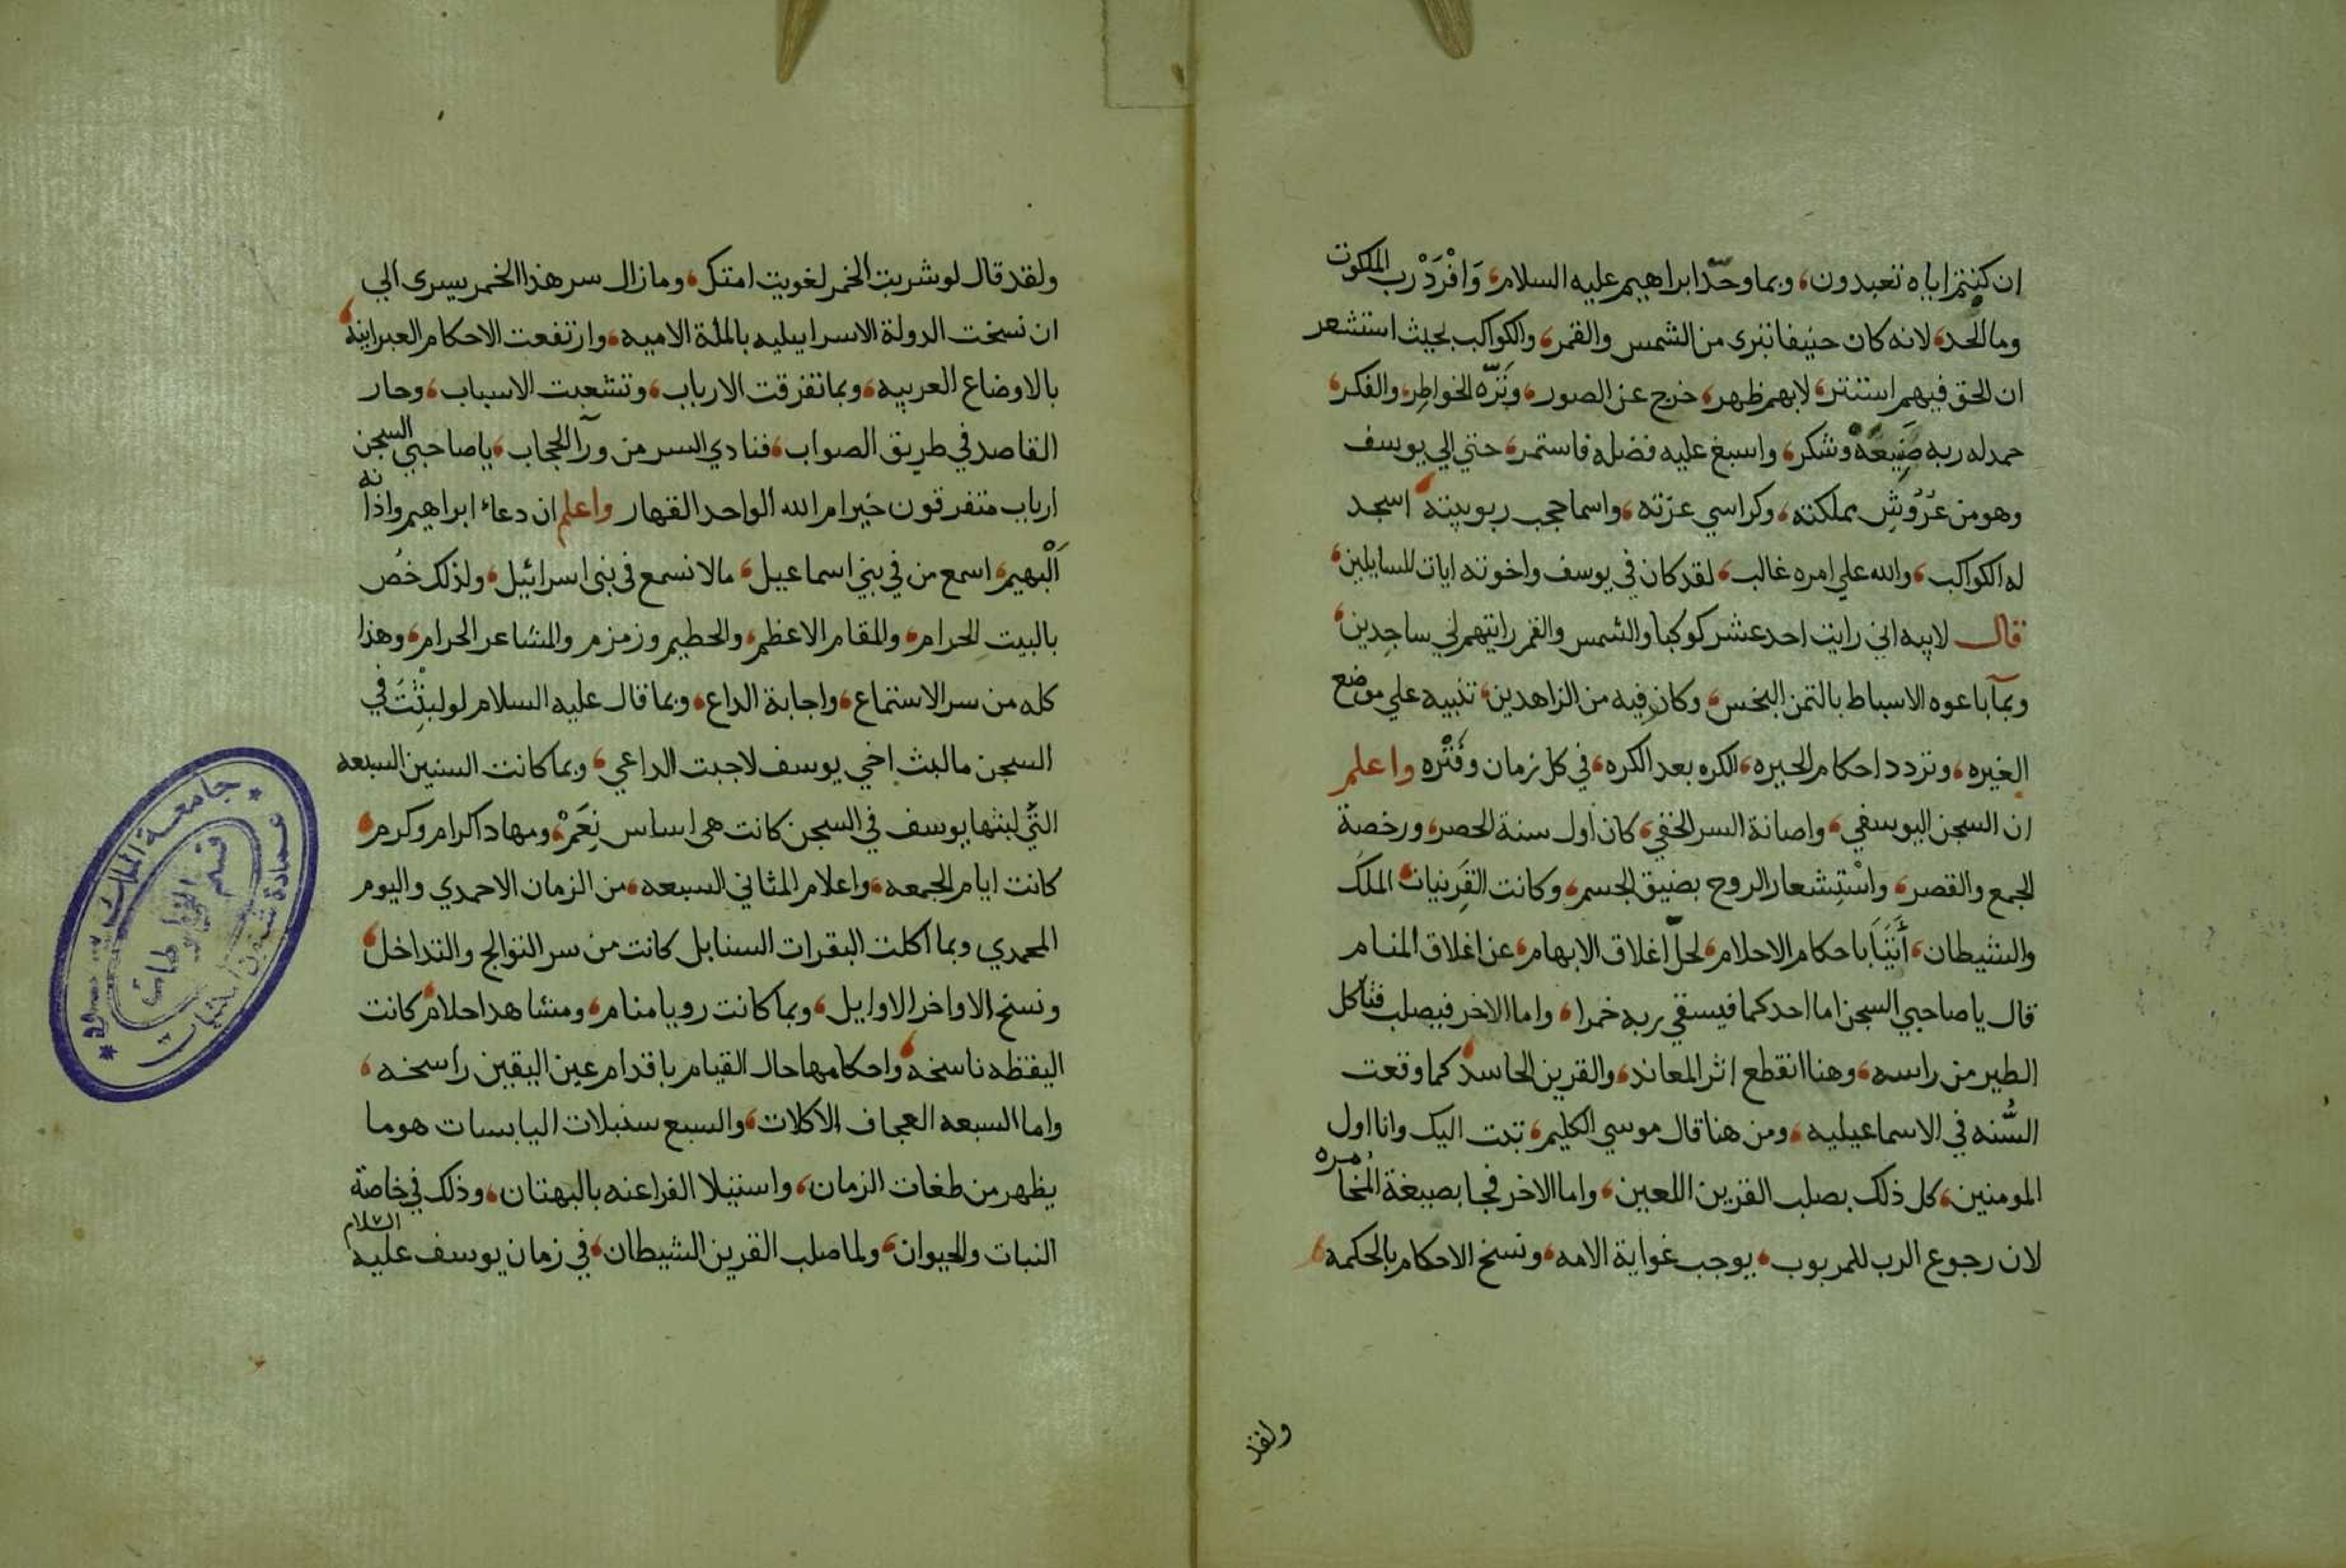 ان كنتم اياه تعبدون، وبما وحّد ابراهيم عليه السلام، وَافْرَدْ رب الملكوت
وما الحد، لانه كان حنيفا تبرى من الشمس والقمر، والكواكب بحيث استشعر
ان الحق فيهم استتر، لابهم ظهر، خرج عن الصور، ونَزّه الخواطر، والفكر،
حمد له ربه صَنِيعَهُ وشكر، واسبغ عليه فضله فاستمر، حتي الي يوسف
وهو من عُرُوشِ مملكته، وكراسي عزته، واسما حجب ربوبيته، اسجد
له الكواكب، والله علي امره غالب، لقد كان في يوسف واخوته ايات للسايلين،
قال لابيه اني رايت احد عشر كوكبا والشمس والقمر رايتهم لي ساجدين،
وبمآ باعوه الاسباط بالثمن البخس، وكان فيه من الزاهدين، تنبيه علي موضع
الغيره، وتردد احكام الحيره، الكره بعد الكره، في كل زمان وفَتْره واعلم
ان السجن اليوسفي، واصانة السر الخفي، كان اول سنة الحصر، ورخصة
الجمع والقصر، واسْتِشعار الروح بضيق الجسم، وكانت القَرِنيات الملك
والشيطان، أَتَيَا باحكام الاحلام، لحلّ اغلاق الابهام، عن اغلاق المنام
قال يا صاحبي السجن اما احدكما فيسقي ربه خمرا، واما الاخر فيصلب فتاكل
الطير من راسه، وهنا انقطع اثر المعاند، والقرين الحاسد، كما وقعت
السُّنه في الاسماعيليه، ومن هنا قال موسي الكليم، تبت اليك وانا اول
المومنين، كل ذلك بصلب القرين اللعين، واما الاخر فجا بصيغة المُخامره
لان رجوع الرب للمربوب، يوجب غواية الامه، ونسخ الاحكام بالحكمه،
ولقد
ولقد قال لو شربت الخمر لغويت امتك، وما زال سر هذا الخمر يسرى الي
ان نسخت الدولة الاسراييليه بالملة الاميه، وارتفعت الاحكام العبرانيه،
بالاوضاع العربيه، وبما تفرقت الارباب، وتشعبت الاسباب، وحار
القاصد في طريق الصواب، فنادي السر من ورآ الحجاب، يا صاحبي السجن
ارباب متفرقون خير ام الله الواحد القهار واعلم ان دعاء ابراهيم واذانه
اَلْبهيم، اسمع من في بني اسماعيل، مالا نسمع في بنى اسرائيل، ولذلك خُص
بالبيت الحرام، والمقام الاعظم، والحطيم وزمزم والمشاعر الحرام، وهذا
كله من سر الاستماع، واجابة الداع، وبما قال عليه السلام لو لبثْتَ في
السجن ما لبث اخي يوسف لاجبت الداعي، وبما كانت السنين السبعه
التّي لبثها يوسف في السجن كانت هي اساس نِعَمْ، ومهاد اكرام وكرم،
كانت ايام الجمعه، واعلام المثاني السبعه، من الزمان الاحمدي واليوم
المحمدي وبما اكلت البقرات السنابل كانت من سر التوالج والتداخل،
ونسخ الاواخر الاوايل، وبما كانت رويا منام، ومشاهد احلام، كانت
اليقظه ناسخه، واحكامها حال القيام باقدام عين اليقين راسخه،
واما السبعه العجاف الاكلات، والسبع سنبلات اليابسات هو ما
يظهر من طغات الزمان، واستيلا الفراعنه بالبهتان، وذلك في خاصة
النبات والحيوان، ولما صلب القرين الشيطان، في زمان يوسف عليه السلام
جامعة الملك سعود
عمادة شؤون المكتبات
قسم المخطوطات